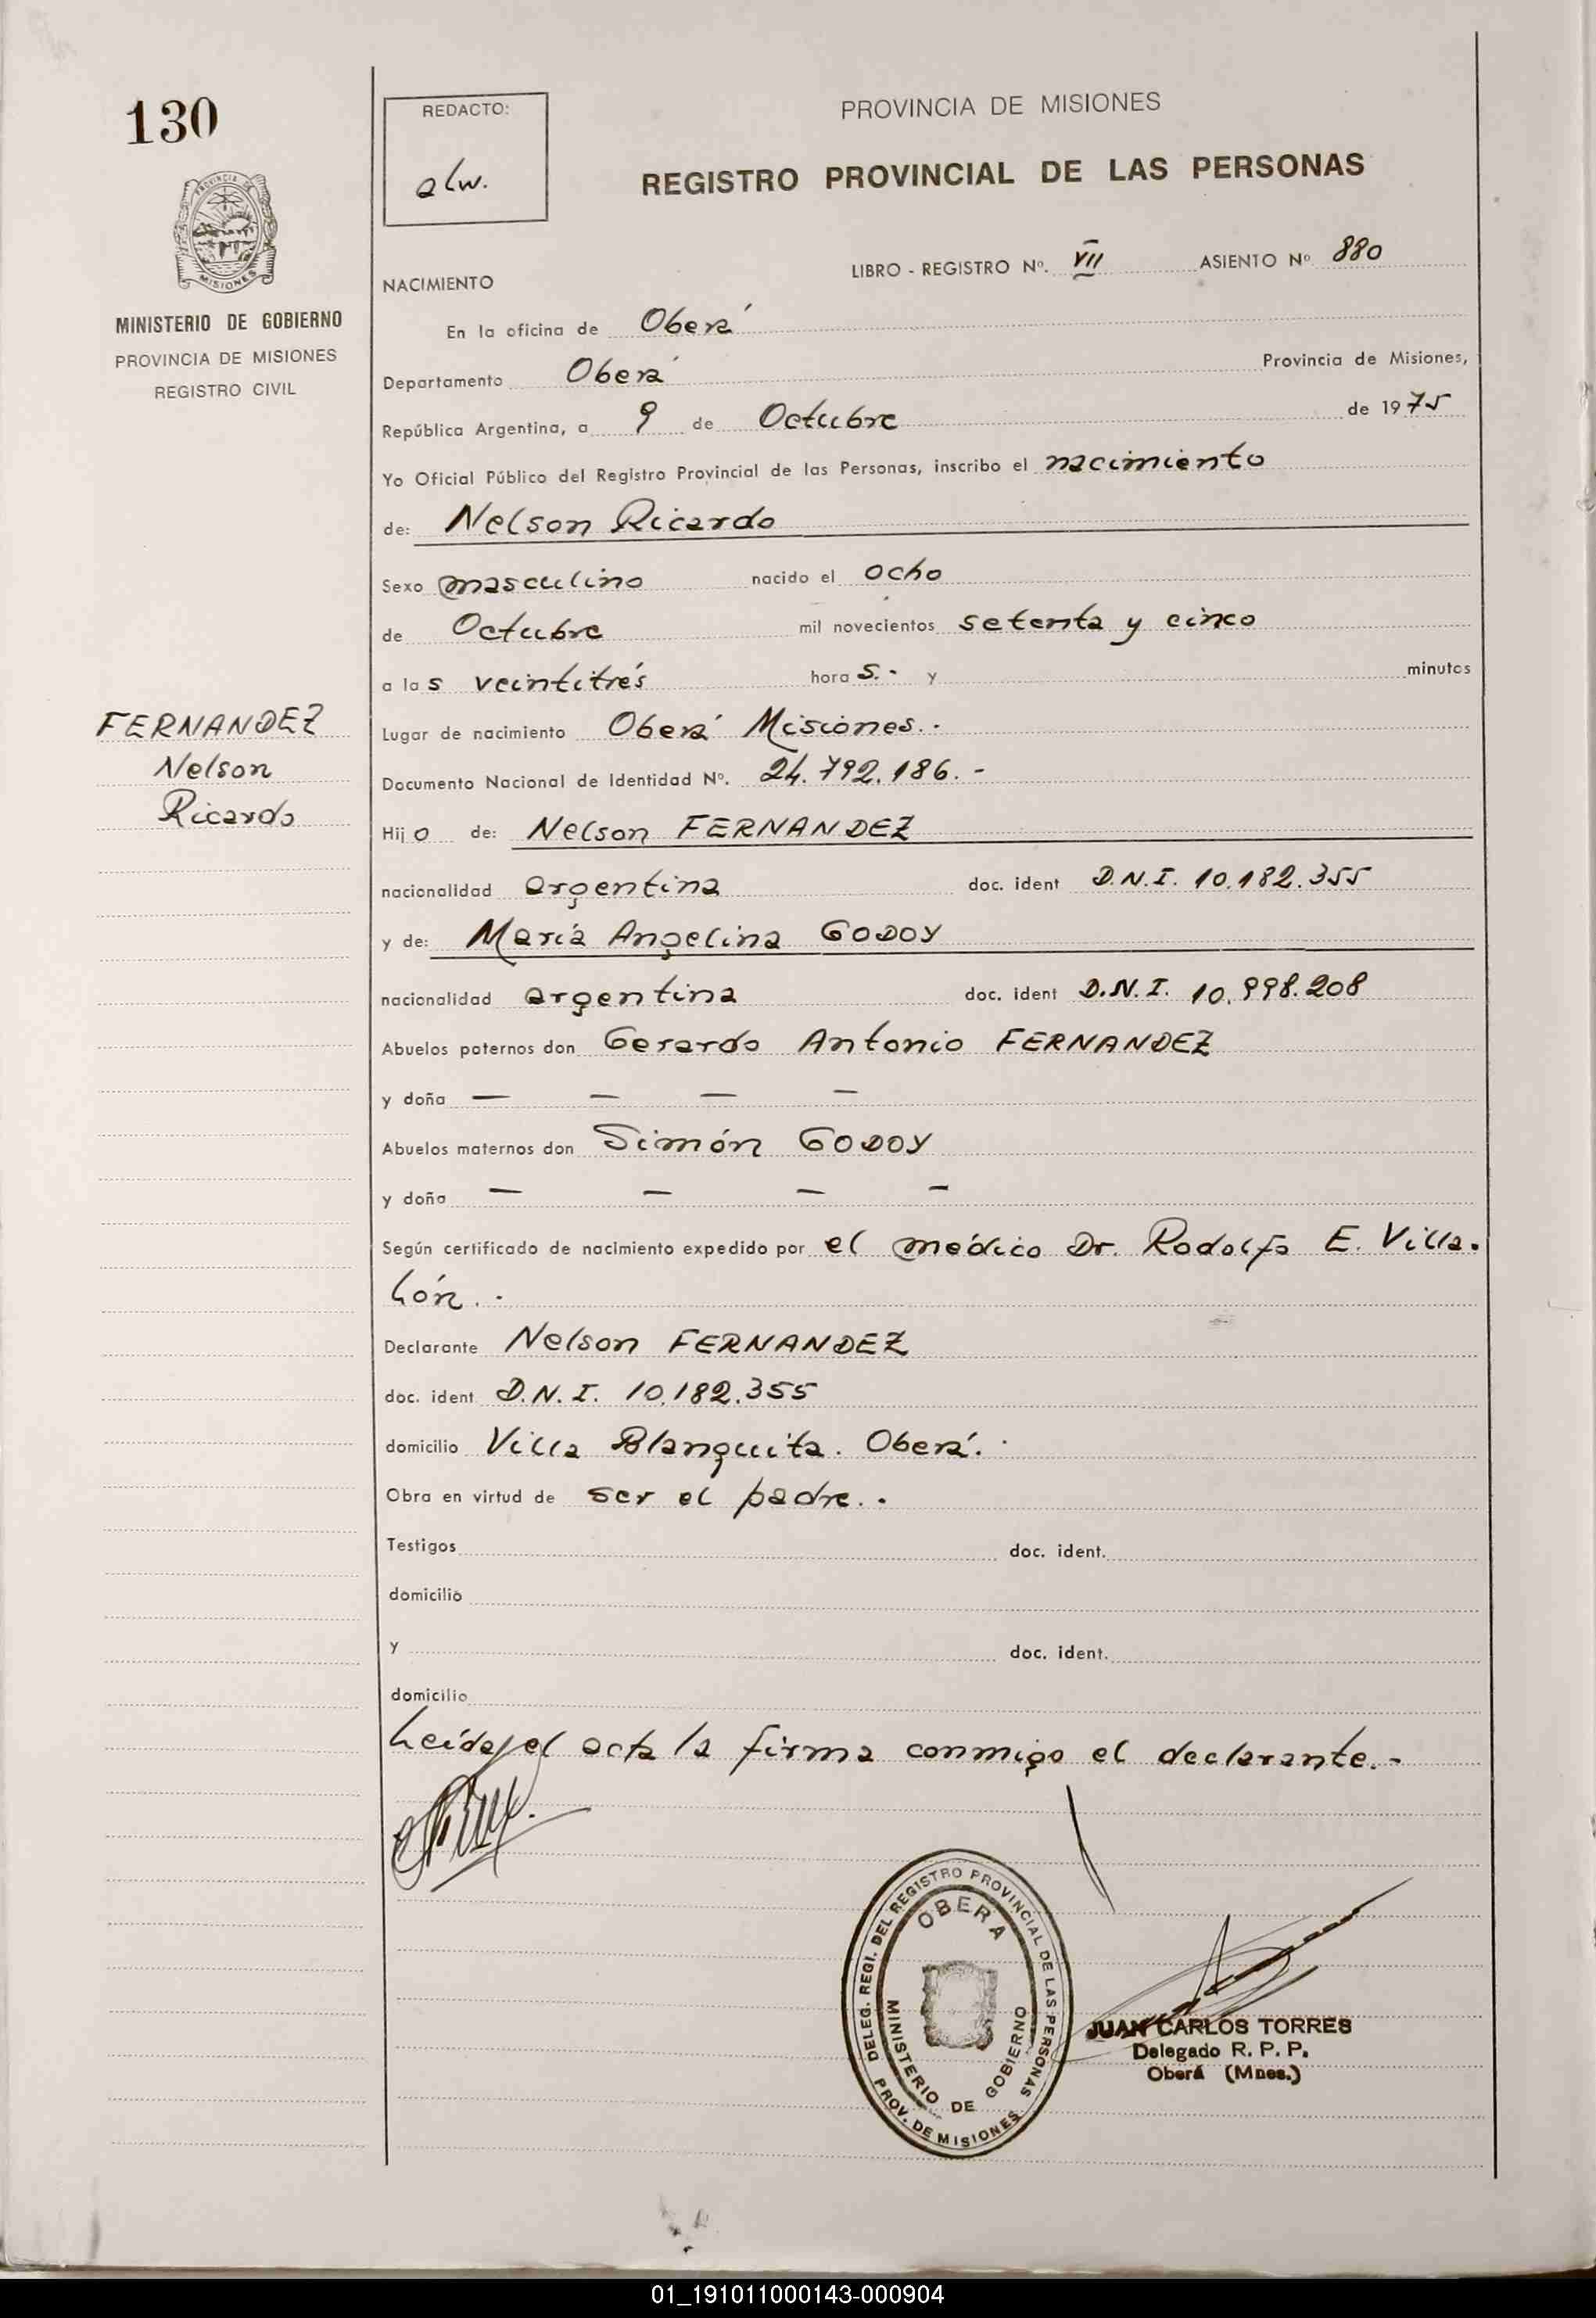 130
REDACTO:
alw.
PROVINCIA DE MISIONES
REGISTRO PROVINCIAL DE LAS PERSONAS
PROVINCIA DE
MISIONES
MINISTERIO DE GOBIERNO
PROVINCIA DE MISIONES
REGISTRO CIVIL
LIBRO - REGISTRO Nº. VII ASIENTO Nº 880
NACIMIENTO
En la oficina de Oberá
Departamento Oberá Provincia de Misiones,
República Argentina, a 9 de Octubre de 1975
Yo Oficial Público del Registro Provincial de las Personas, inscribo el nacimiento
de: Nelson Ricardo
Sexo masculino nacido el ocho
de Octubre mil novecientos setenta y cinco
a las veintitrés horas.- y minutos
FERNANDEZ
Nelson
Ricardo
Lugar de nacimiento Oberá Misiones.-
Documento Nacional de Identidad Nº. 24.792.186.-
Hijo de: Nelson FERNANDEZ
nacionalidad argentina doc. ident D.N.I. 10.182.355
y de: María Angelina GODOY
nacionalidad argentina doc. ident D.N.I. 10.998.208
Abuelos paternos don Gerardo Antonio FERNANDEZ
y doña — — — —
Abuelos maternos don Simón GODOY
y doña — — — —
Según certificado de nacimiento expedido por el médico Dr. Rodolfo E. Villa-
lón.-
Declarante Nelson FERNANDEZ
doc. ident D.N.I. 10.182.355
domicilio Villa Blanquita. Oberá.-
Obra en virtud de ser el padre.-
Testigos doc. ident.
domicilio
y doc. ident.
domicilio
Leída el acta la firma conmigo el declarante.-
DELEG. REGI. DEL REGISTRO PROVINCIAL DE LAS PERSONAS
PROV. DE MISIONES
OBERA
MINISTERIO DE GOBIERNO
JUAN CARLOS TORRES
Delegado R. P. P.
Oberá (Mnes.)
01_191011000143-000904